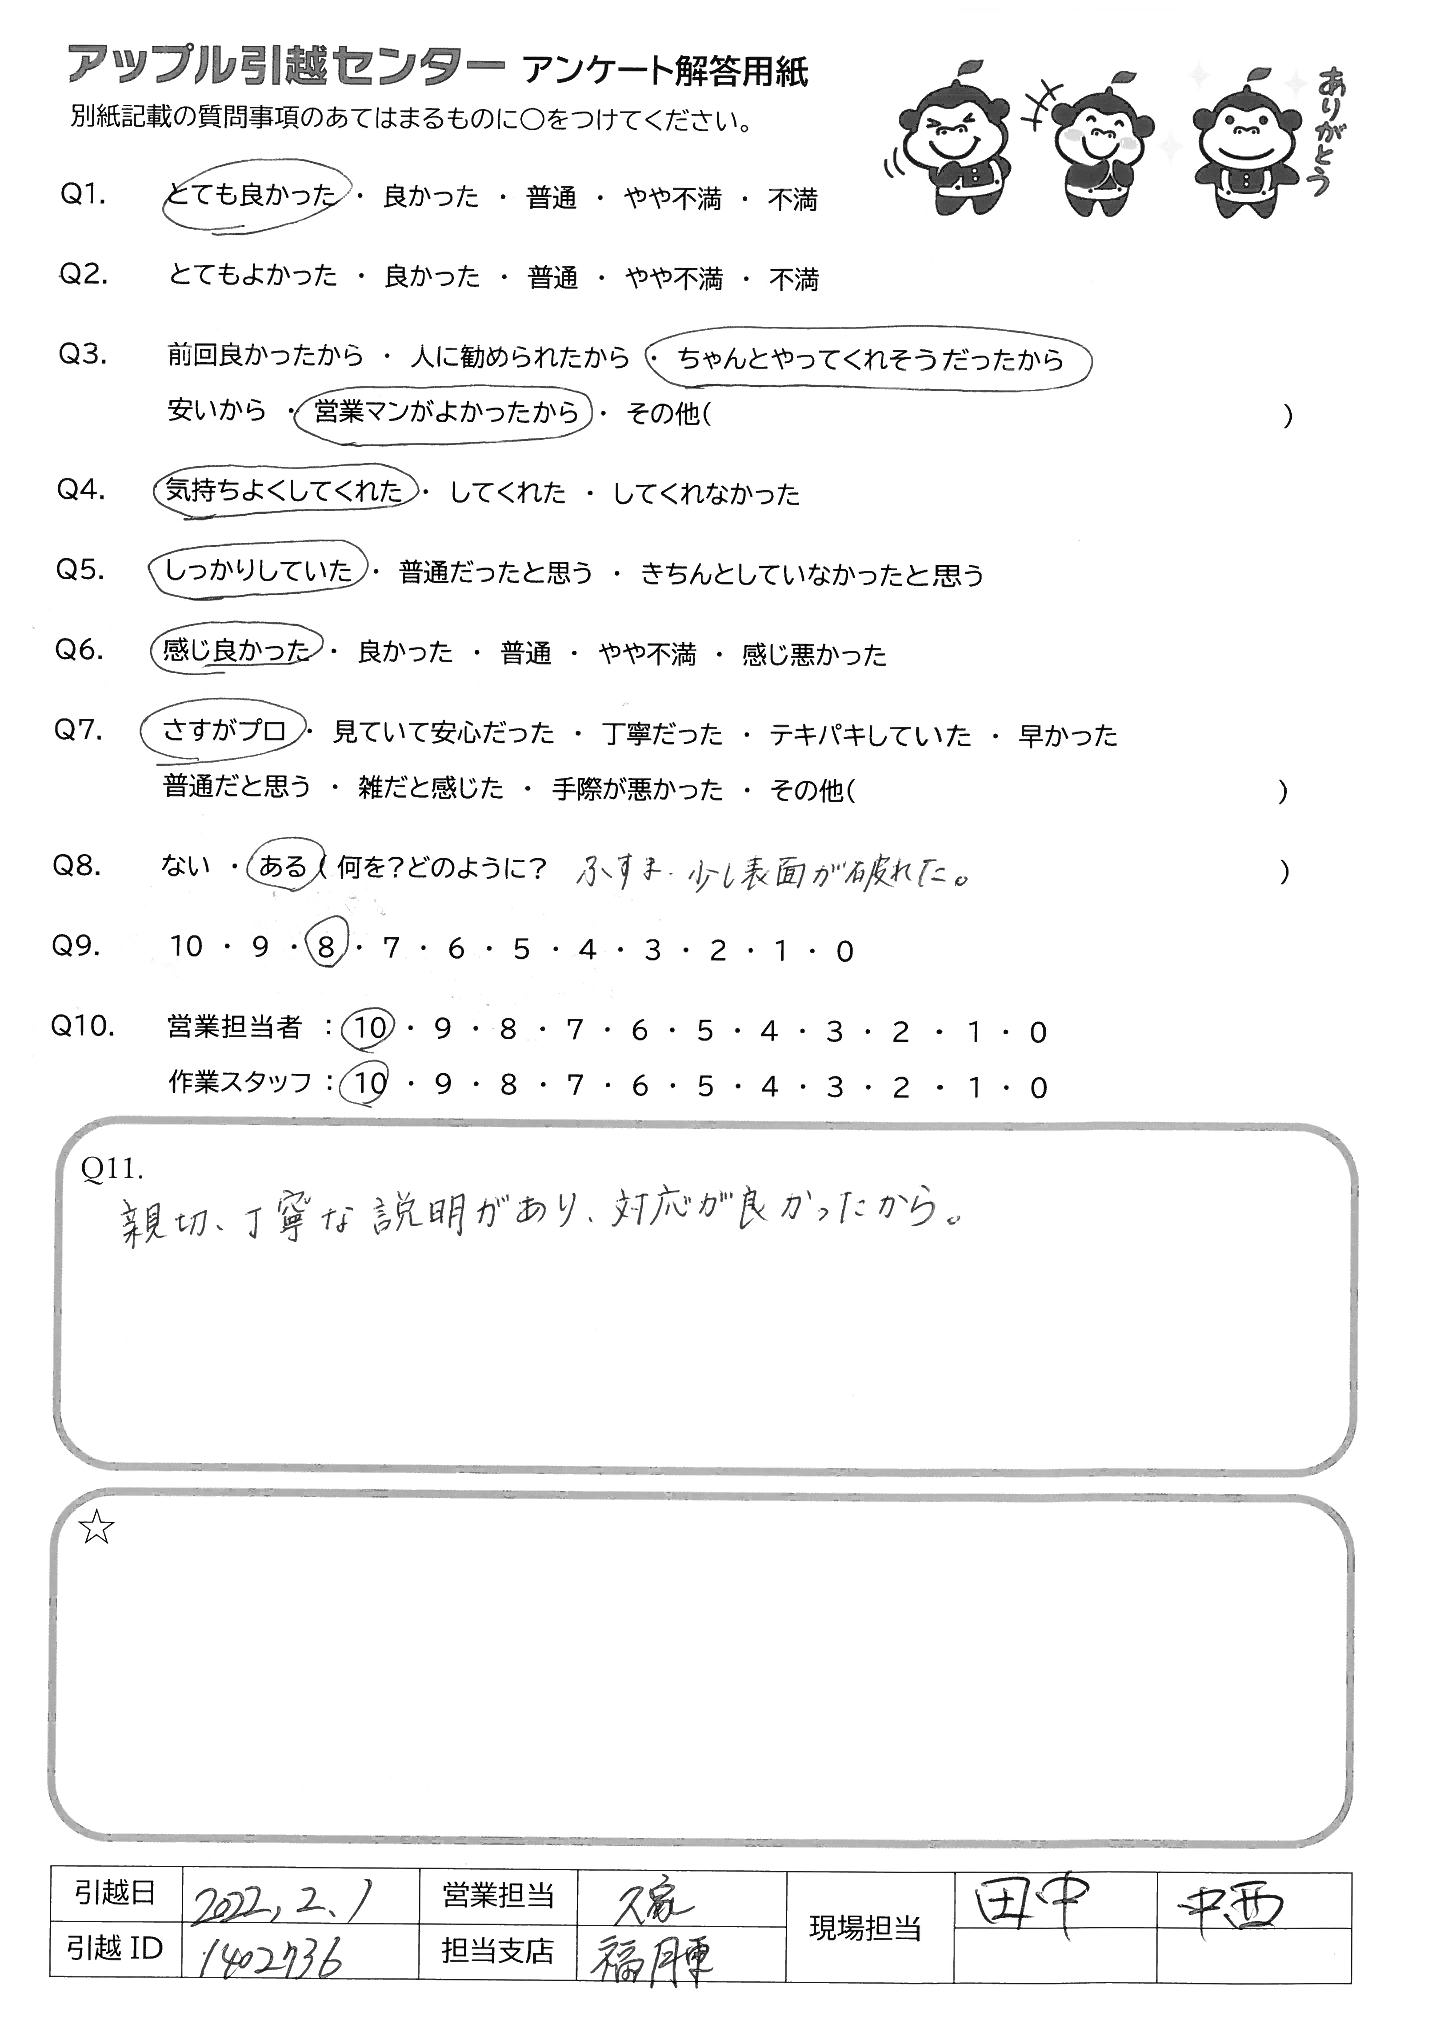 アップル引越センター アンケート解答用紙
別紙記載の質問事項のあてはまるものに○をつけてください。
ありがとう
Q1. とても良かった ・ 良かった ・ 普通 ・ やや不満 ・ 不満
Q2. とてもよかった ・ 良かった ・ 普通 ・ やや不満 ・ 不満
Q3. 前回良かったから ・ 人に勧められたから ・ ちゃんとやってくれそうだったから
安いから ・ 営業マンがよかったから ・ その他( )
Q4. 気持ちよくしてくれた ・ してくれた ・ してくれなかった
Q5. しっかりしていた ・ 普通だったと思う ・ きちんとしていなかったと思う
Q6. 感じ良かった ・ 良かった ・ 普通 ・ やや不満 ・ 感じ悪かった
Q7. さすがプロ ・ 見ていて安心だった ・ 丁寧だった ・ テキパキしていた ・ 早かった
普通だと思う ・ 雑だと感じた ・ 手際が悪かった ・ その他( )
Q8. ない ・ ある ( 何を?どのように? ふすま. 少し表面が破れた。 )
Q9. 10 ・ 9 ・ 8 ・ 7 ・ 6 ・ 5 ・ 4 ・ 3 ・ 2 ・ 1 ・ 0
Q10. 営業担当者 : 10 ・ 9 ・ 8 ・ 7 ・ 6 ・ 5 ・ 4 ・ 3 ・ 2 ・ 1 ・ 0
作業スタッフ : 10 ・ 9 ・ 8 ・ 7 ・ 6 ・ 5 ・ 4 ・ 3 ・ 2 ・ 1 ・ 0
Q11.
親切、丁寧な説明があり、対応が良かったから。
☆
引越日 2022,2,1 営業担当 久家 現場担当 田中 中西
引越ID 1402736 担当支店 福岡東